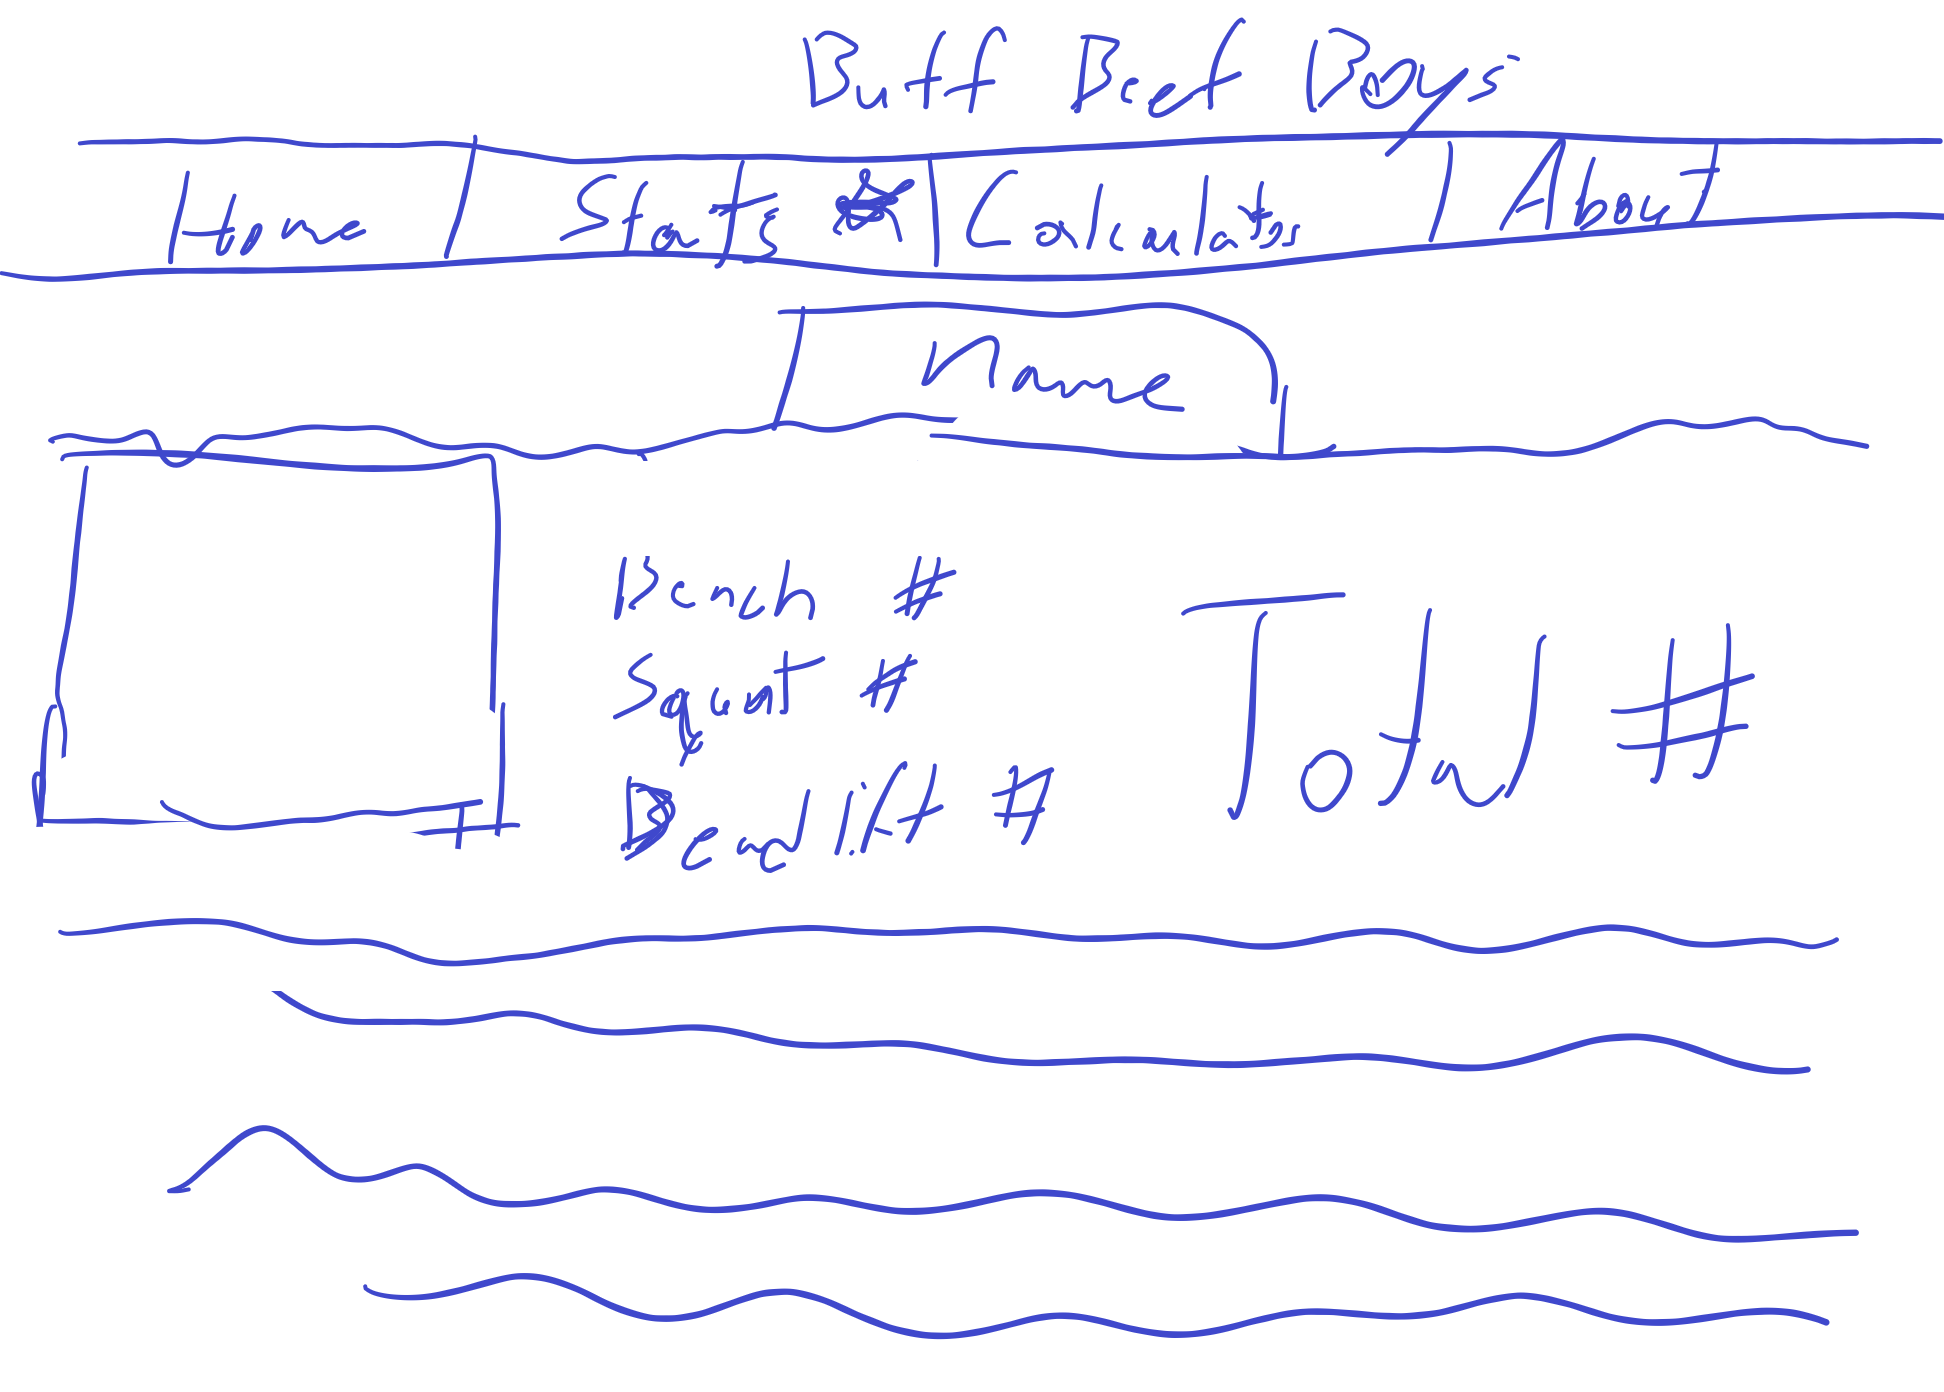 Buff Beef Boys
Home Stats Calculator About
Name
Bench #
Squat #
Deadlift #
Total #